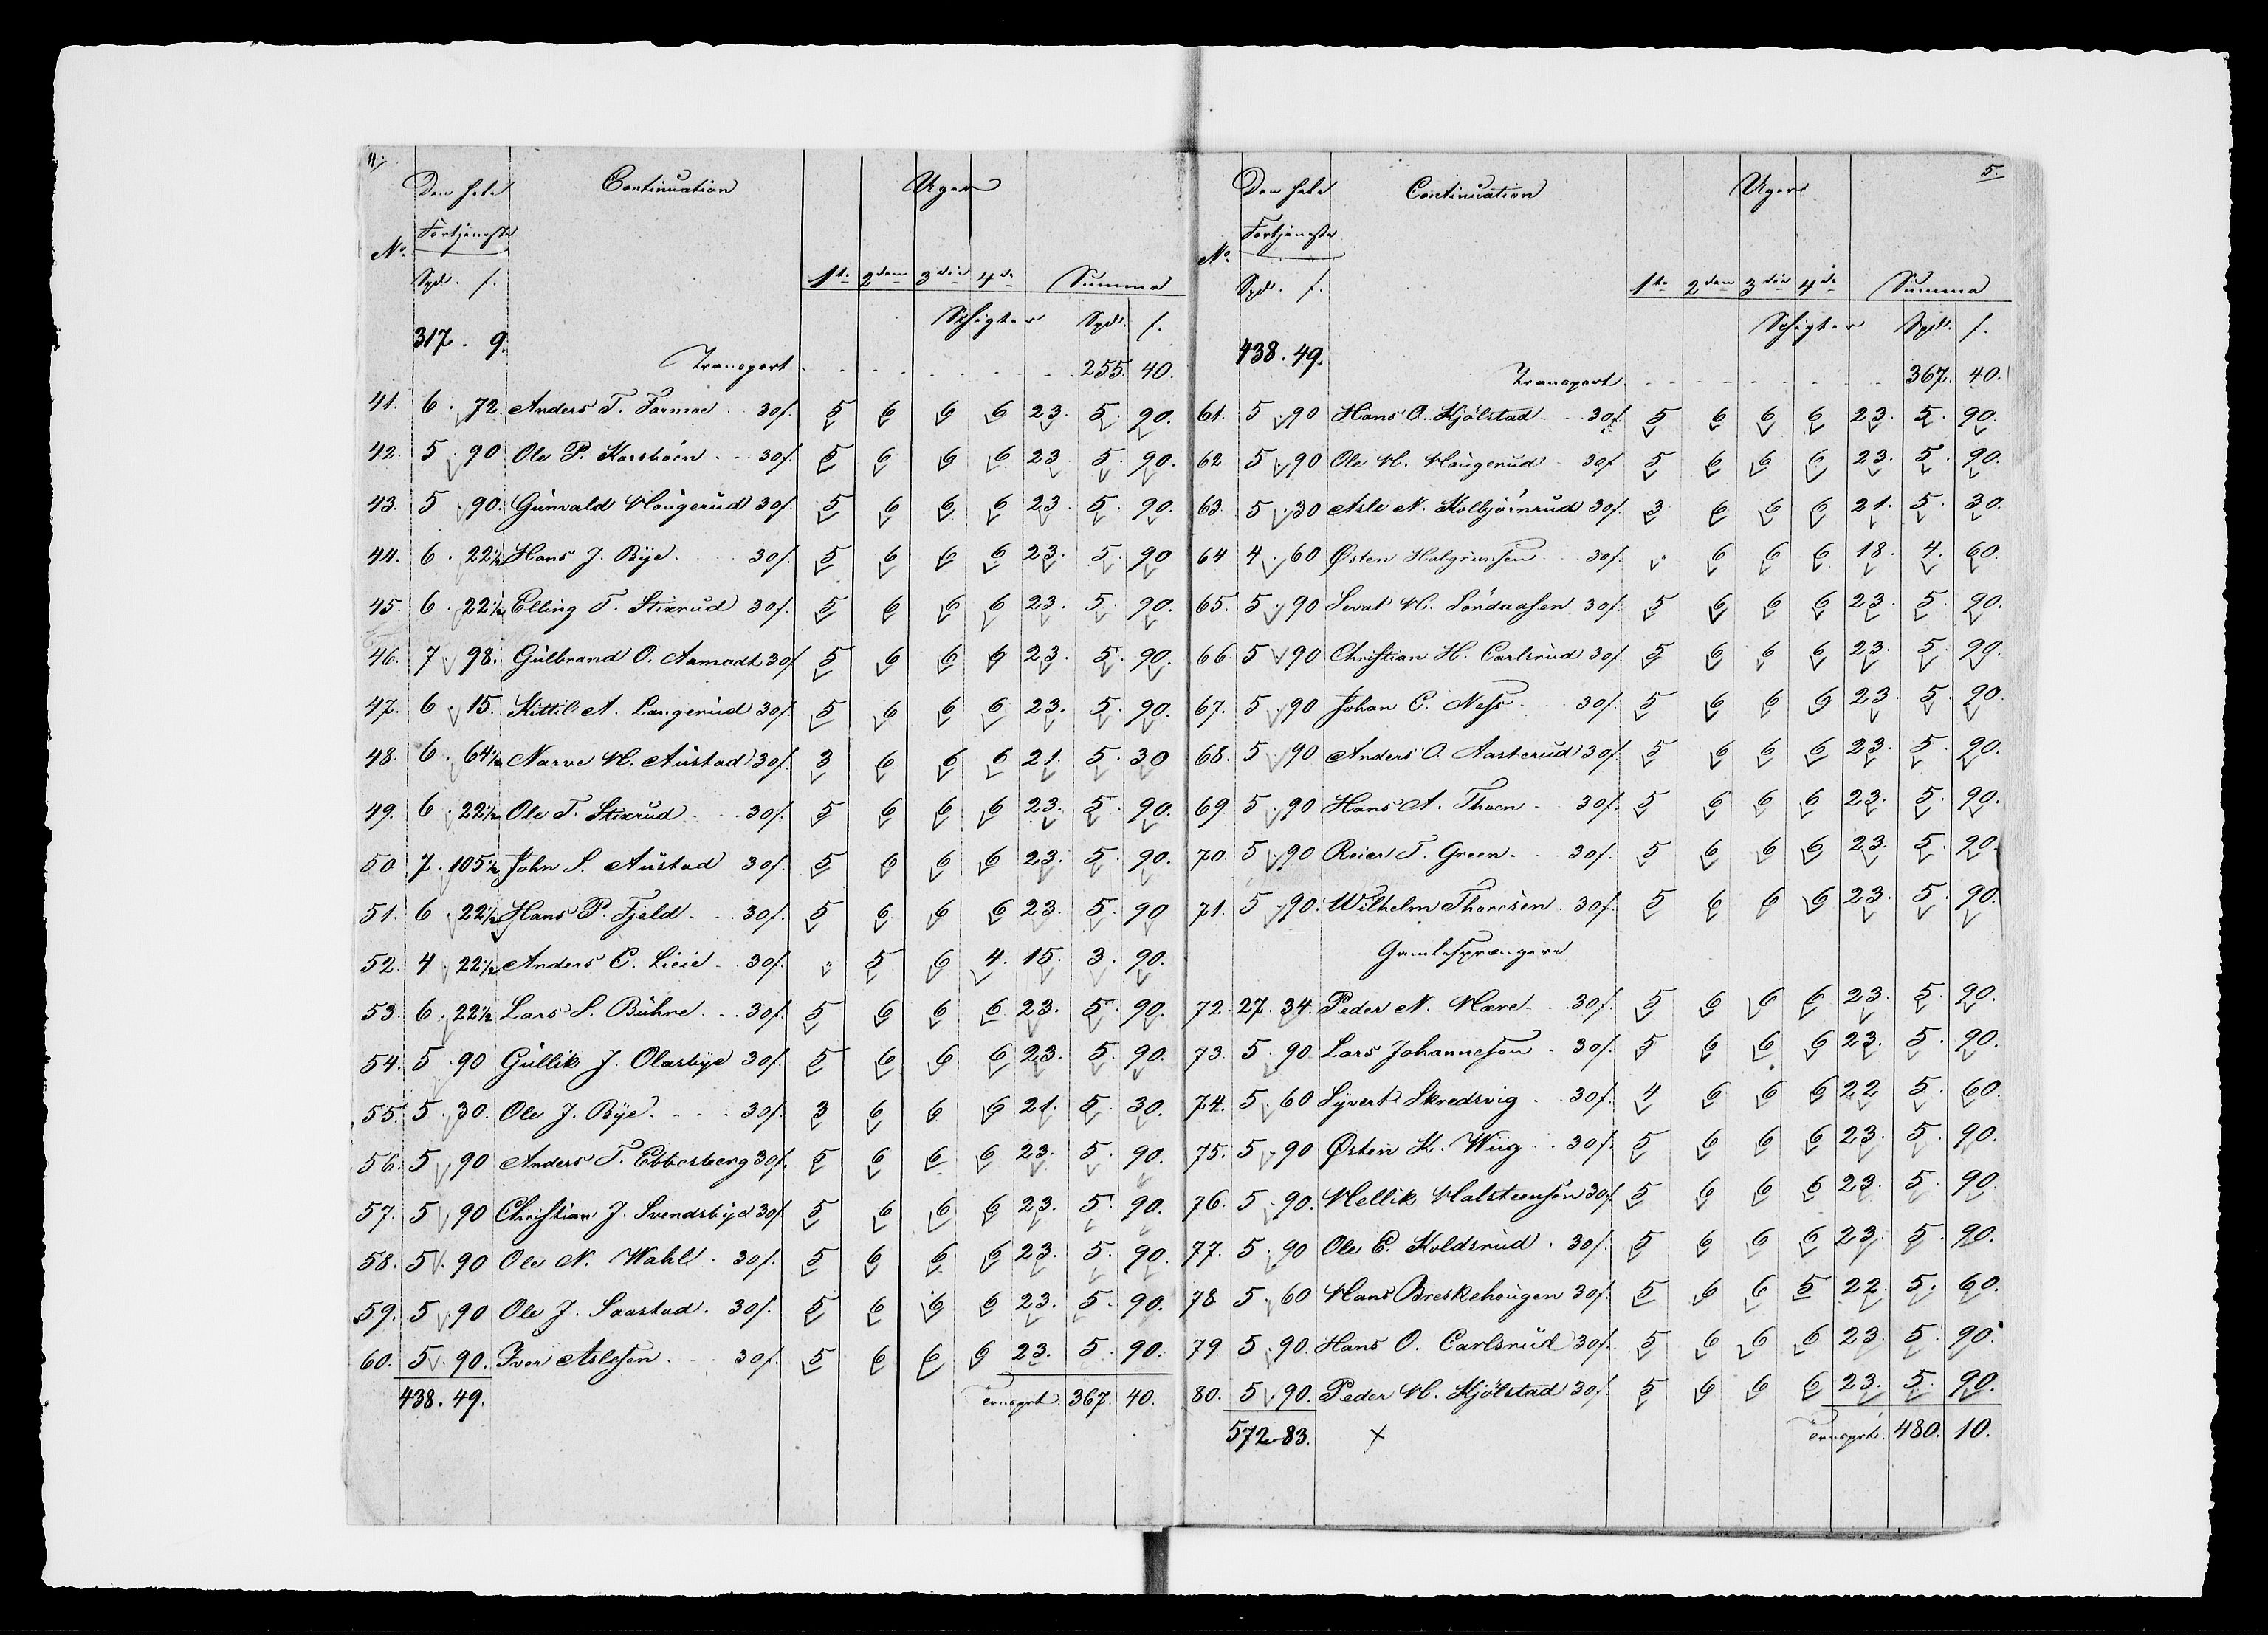 4.
Den hele Continuation Uger
Fortjeneste
No.
Spd. ſ. 1te 2den 3die 4de Summa
Schigter Spd. ſ.
317. 9.
Transport 255. 40.
41. 6. 72. Anders T. Formoe 30ſ. 5 6 6 6 23. 5. 90.
42. 5. 90 Ole P. Korsböen 30ſ. 5 6 6 6 23. 5. 90.
43. 5 90. Gunvald Mougerud 30ſ. 5 6 6 6 23. 5. 90.
44. 6. 22½ Hans J. Bye 30ſ. 5 6 6 6 23. 5. 90
45. 6. 22½ Elling T. Stixrud 30ſ. 5 6 6 6 23. 5. 90.
46. 7 98. Gulbrand O. Aamodt 30ſ 5 6 6 6 23. 5. 90.
47. 6. 15. Kittil A. Langerud 30ſ. 5 6 6 6 23. 5. 90.
48. 6. 64½ Narve M. Austad 30ſ. 3 6 6 6 21. 5. 30
49. 6. 22½ Ole T. Stixrud 30ſ. 5 6 6 6 23. 5. 90.
50 7. 105½ John S. Austad 30ſ. 5 6 6 6 23. 5. 90.
51. 6 22½ Hans P. Fjeld 30ſ. 5 6 6 6 23. 5. 90
52. 4 22½ Anders E. Lieie 30ſ. " 5 6 4. 15. 3. 90.
53. 6. 22½ Lars S. Buhre 30ſ. 5 6 6 6 23. 5. 90.
54. 5. 90 Gullik J. Olasbye 30ſ. 5 6 6 6 23. 5. 90.
55. 5. 30. Ole J. Bye 30ſ. 3 6 6 6 21. 5. 30.
56. 5 90 Anders T. Ebbesberg 30ſ. 5 6 6 6 23. 5. 90.
57. 5 90 Christian J. Svendsbye 30ſ 5 6 6 6 23. 5. 90.
58. 5. 90 Ole N. Wahl 30ſ. 5 6 6 6 23. 5. 90.
59. 5 90 Ole J. Saastad. 30ſ. 5 6 6 6 23. 5. 90.
60. 5. 90. Iver Aslesen 30ſ. 5 6 6 6 23. 5. 90.
438. 49. Trnsprt. 367. 40.
5.
Den hele Continuation Uger
Fortjeneste
No.
Spd. ſ. 1te 2den 3die 4de Summa
Schigter Spd. ſ.
438. 49.
Transport 367. 40.
61. 5 90 Hans O. Kjölstad 30ſ. 5 6 6 6 23. 5. 90.
62 5 90 Ole M. Mougerud 30ſ 5 6 6 6 23. 5. 90.
63. 5. 30 Asle N. Kolbjörnrud 30ſ. 3 6 6 6 21. 5. 30.
64 4. 60 Østen Halgrimsen 30ſ. " 6 6 6 18. 4. 60.
65. 5. 90 Sevat M. Söndaasen 30ſ. 5 6 6 6 23. 5. 90.
66. 5 90 Christian H. Carlsrud 30ſ. 5 6 6 6 23. 5. 90.
67. 5 90 Johan C. Ness 30ſ. 5 6 6 6 23. 5. 90.
68. 5 90 Anders O. Aasterud 30ſ. 5 6 6 6 23. 5. 90.
69 5. 90 Hans A. Thoen 30ſ. 5 6 6 6 23. 5. 90.
70. 5. 90 Reier T. Green 30ſ. 5 6 6 6 23. 5. 90.
71. 5 90. Wilhelm Thoresen. 30ſ. 5 6 6 6 23. 5. 90.
Gamlesprængere
72. 27. 34. Peder N. Mære 30ſ. 5 6 6 6 23. 5. 90.
73. 5. 90 Lars Johannesen 30ſ. 5 6 6 6 23. 5. 90.
74. 5 60 Syvert Skredsvig 30ſ. 4 6 6 6 22 5. 60.
75. 5. 90 Østen K. Wiig 30ſ. 5 6 6 6 23. 5. 90.
76. 5. 90. Mellik Malsteensen 30ſ 5 6 6 6 23. 5. 90.
77. 5. 90 Ole E. Koldsrud 30ſ. 5 6 6 6 23. 5. 90.
78 5 60 Hans Breskehougen 30ſ. 5 6 6 5 22. 5. 60.
79. 5. 90. Hans O. Carlsrud 30ſ. 5 6 6 6 23. 5. 90.
80. 5 90. Peder M. Kjölstad 30ſ. 5 6 6 6 23. 5. 90.
572. 83. × Trnsprt. 480. 10.